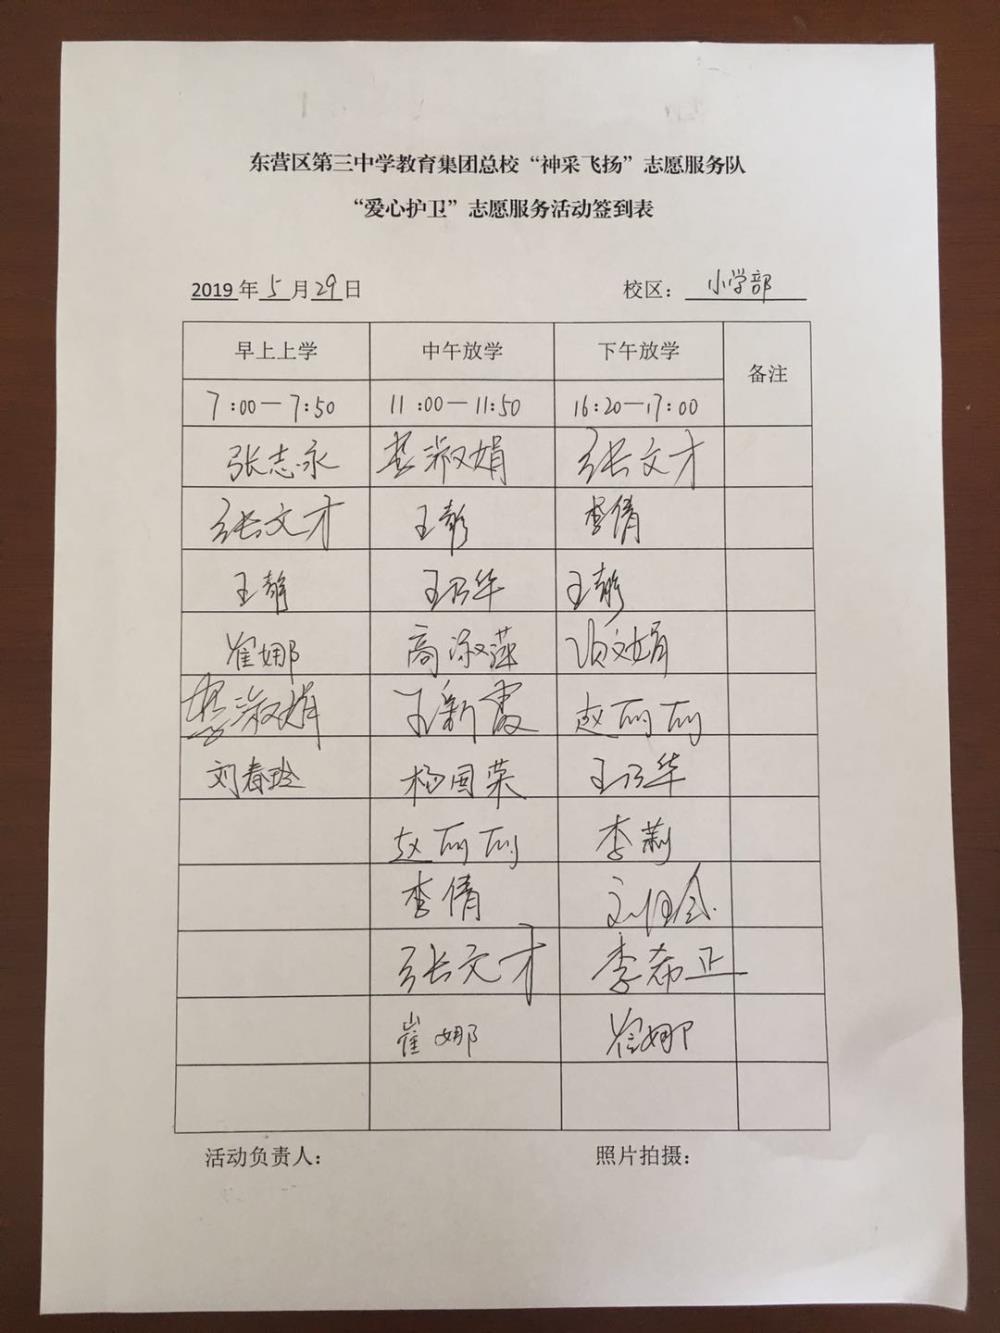 东营区第三中学教育集团总校“神采飞扬”志愿服务队
“爱心护卫”志愿服务活动签到表
2019年 5 月 29 日 校区： 小学部
早上上学 中午放学 下午放学 备注
7:00—7:50 11:00—11:50 16:20—17:00
张志永 淑娟 张文才
张文才 王彭 李倩
王静 王乃华 王彭
崔娜 高淑萍 文娟
淑娟 王新霞 赵丽丽
刘春玲 杨国荣 王乃华
赵丽丽 李莉
李倩
张文才 李希正
崔娜 崔娜
活动负责人： 照片拍摄：